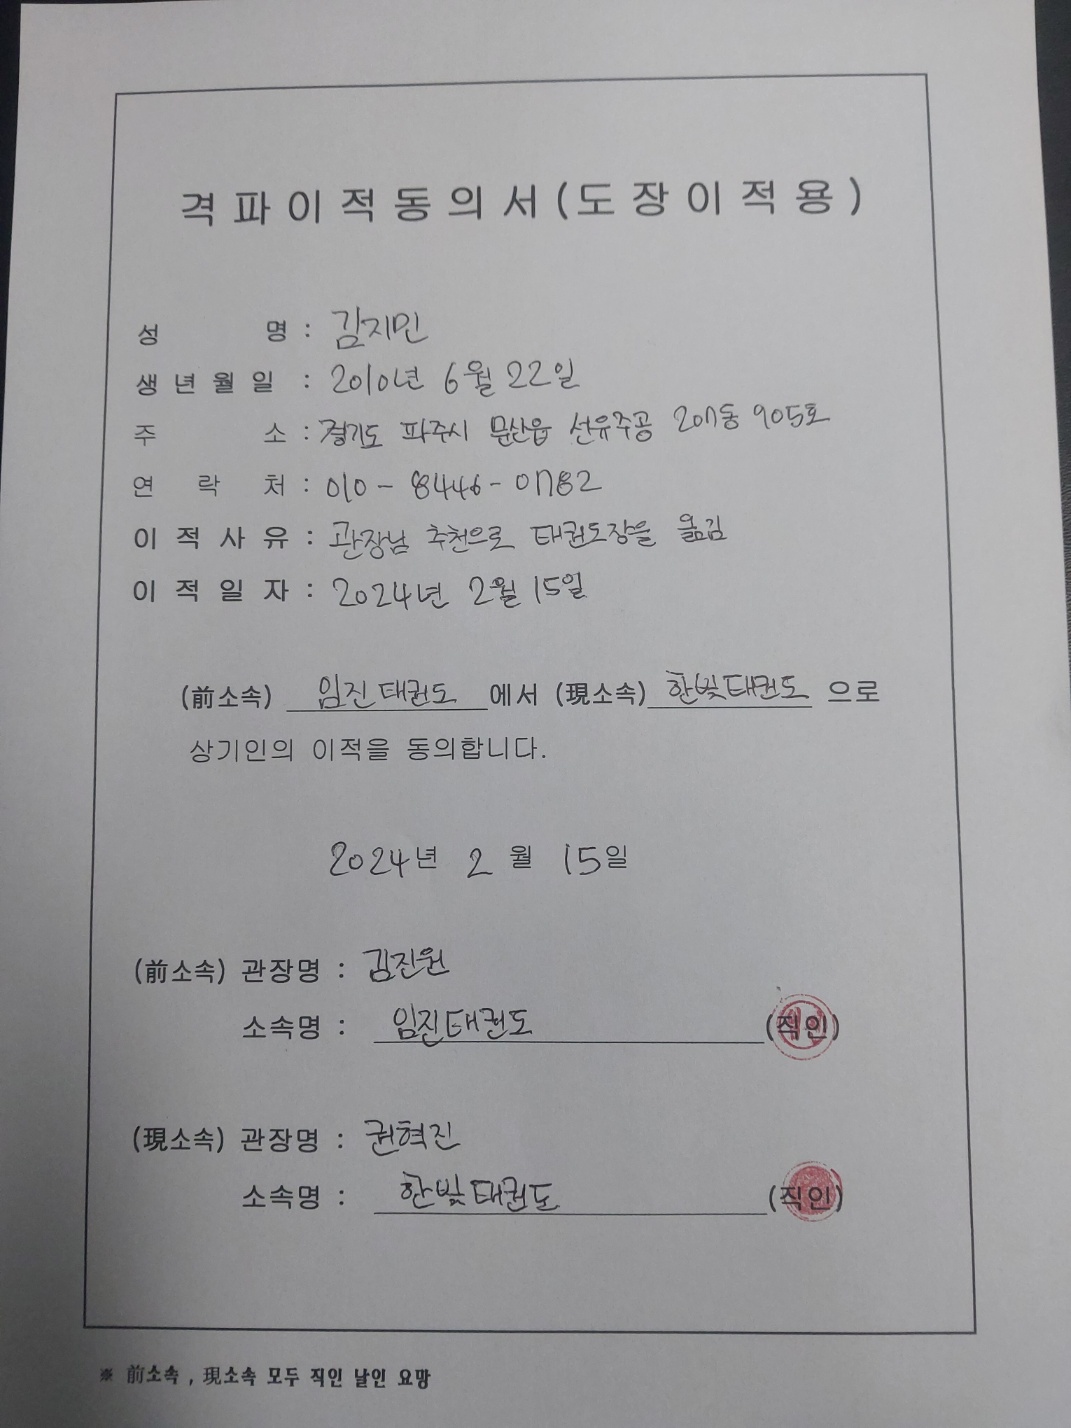 격파이적동의서(도장이적용)
성 명 : 김지민
생년월일 : 2010년 6월 22일
주 소 : 경기도 파주시 문산읍 선유주공 207동 905호
연 락 처 : 010-8446-0782
이적사유 : 관장님 추천으로 태권도장을 옮김
이적일자 : 2024년 2월 15일
(前소속) 임진태권도 에서 (現소속) 한빛태권도 으로
상기인의 이적을 동의합니다.
2024년 2월 15일
(前소속) 관장명 : 김진원
소속명 : 임진태권도 (직인)
(現소속) 관장명 : 권혁진
소속명 : 한빛태권도 (직인)
※ 前소속 , 現소속 모두 직인 날인 요망